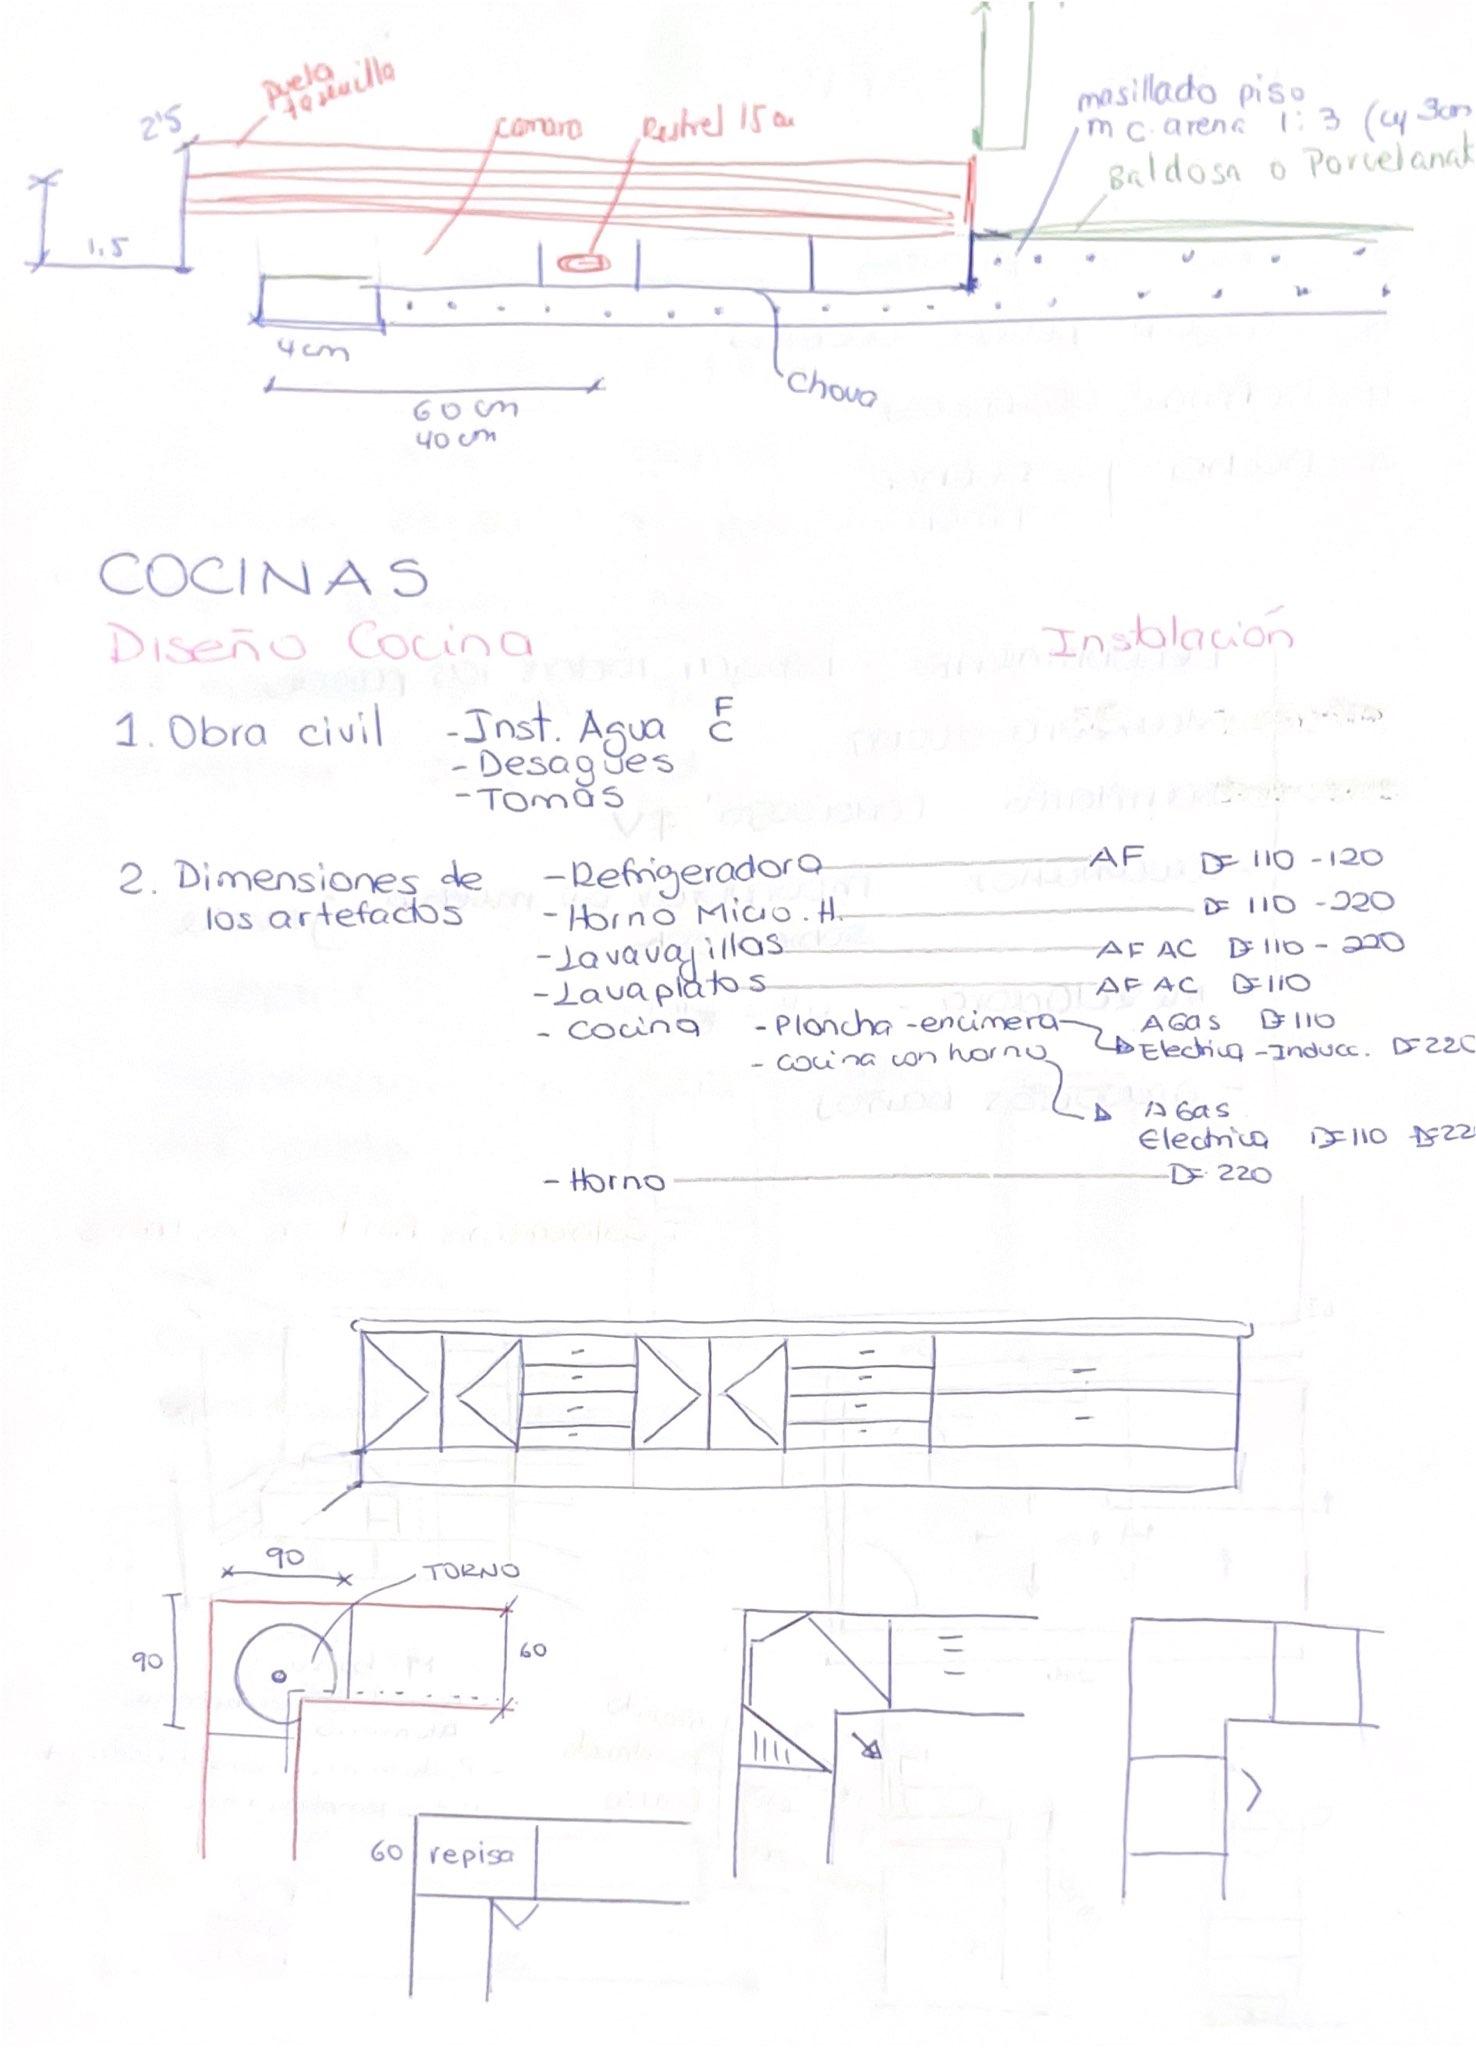 2'5
camara
Rastrel 15 cm
masillado piso
m c. arena 1:3 (
Baldosa o Porcelanat
1.5
4 cm
60 cm
40 cm
Chova
COCINAS
Diseño Cocina
Instalación
1. Obra civil - Inst. Agua F
C
- Desagües
- Tomas
2. Dimensiones de
los artefactos
- Refrigeradora AF 110 - 120
- Horno Micro. H. 110 - 220
- Lavavajillas AF AC 110 - 220
- Lavaplatos AF AC 110
- Cocina - Plancha - encimera A Gas 110
Electrica - Inducc. 220
- cocina con horno
A Gas
Electrica 110 22
- Horno 220
90
TORNO
90
60
60
repisa